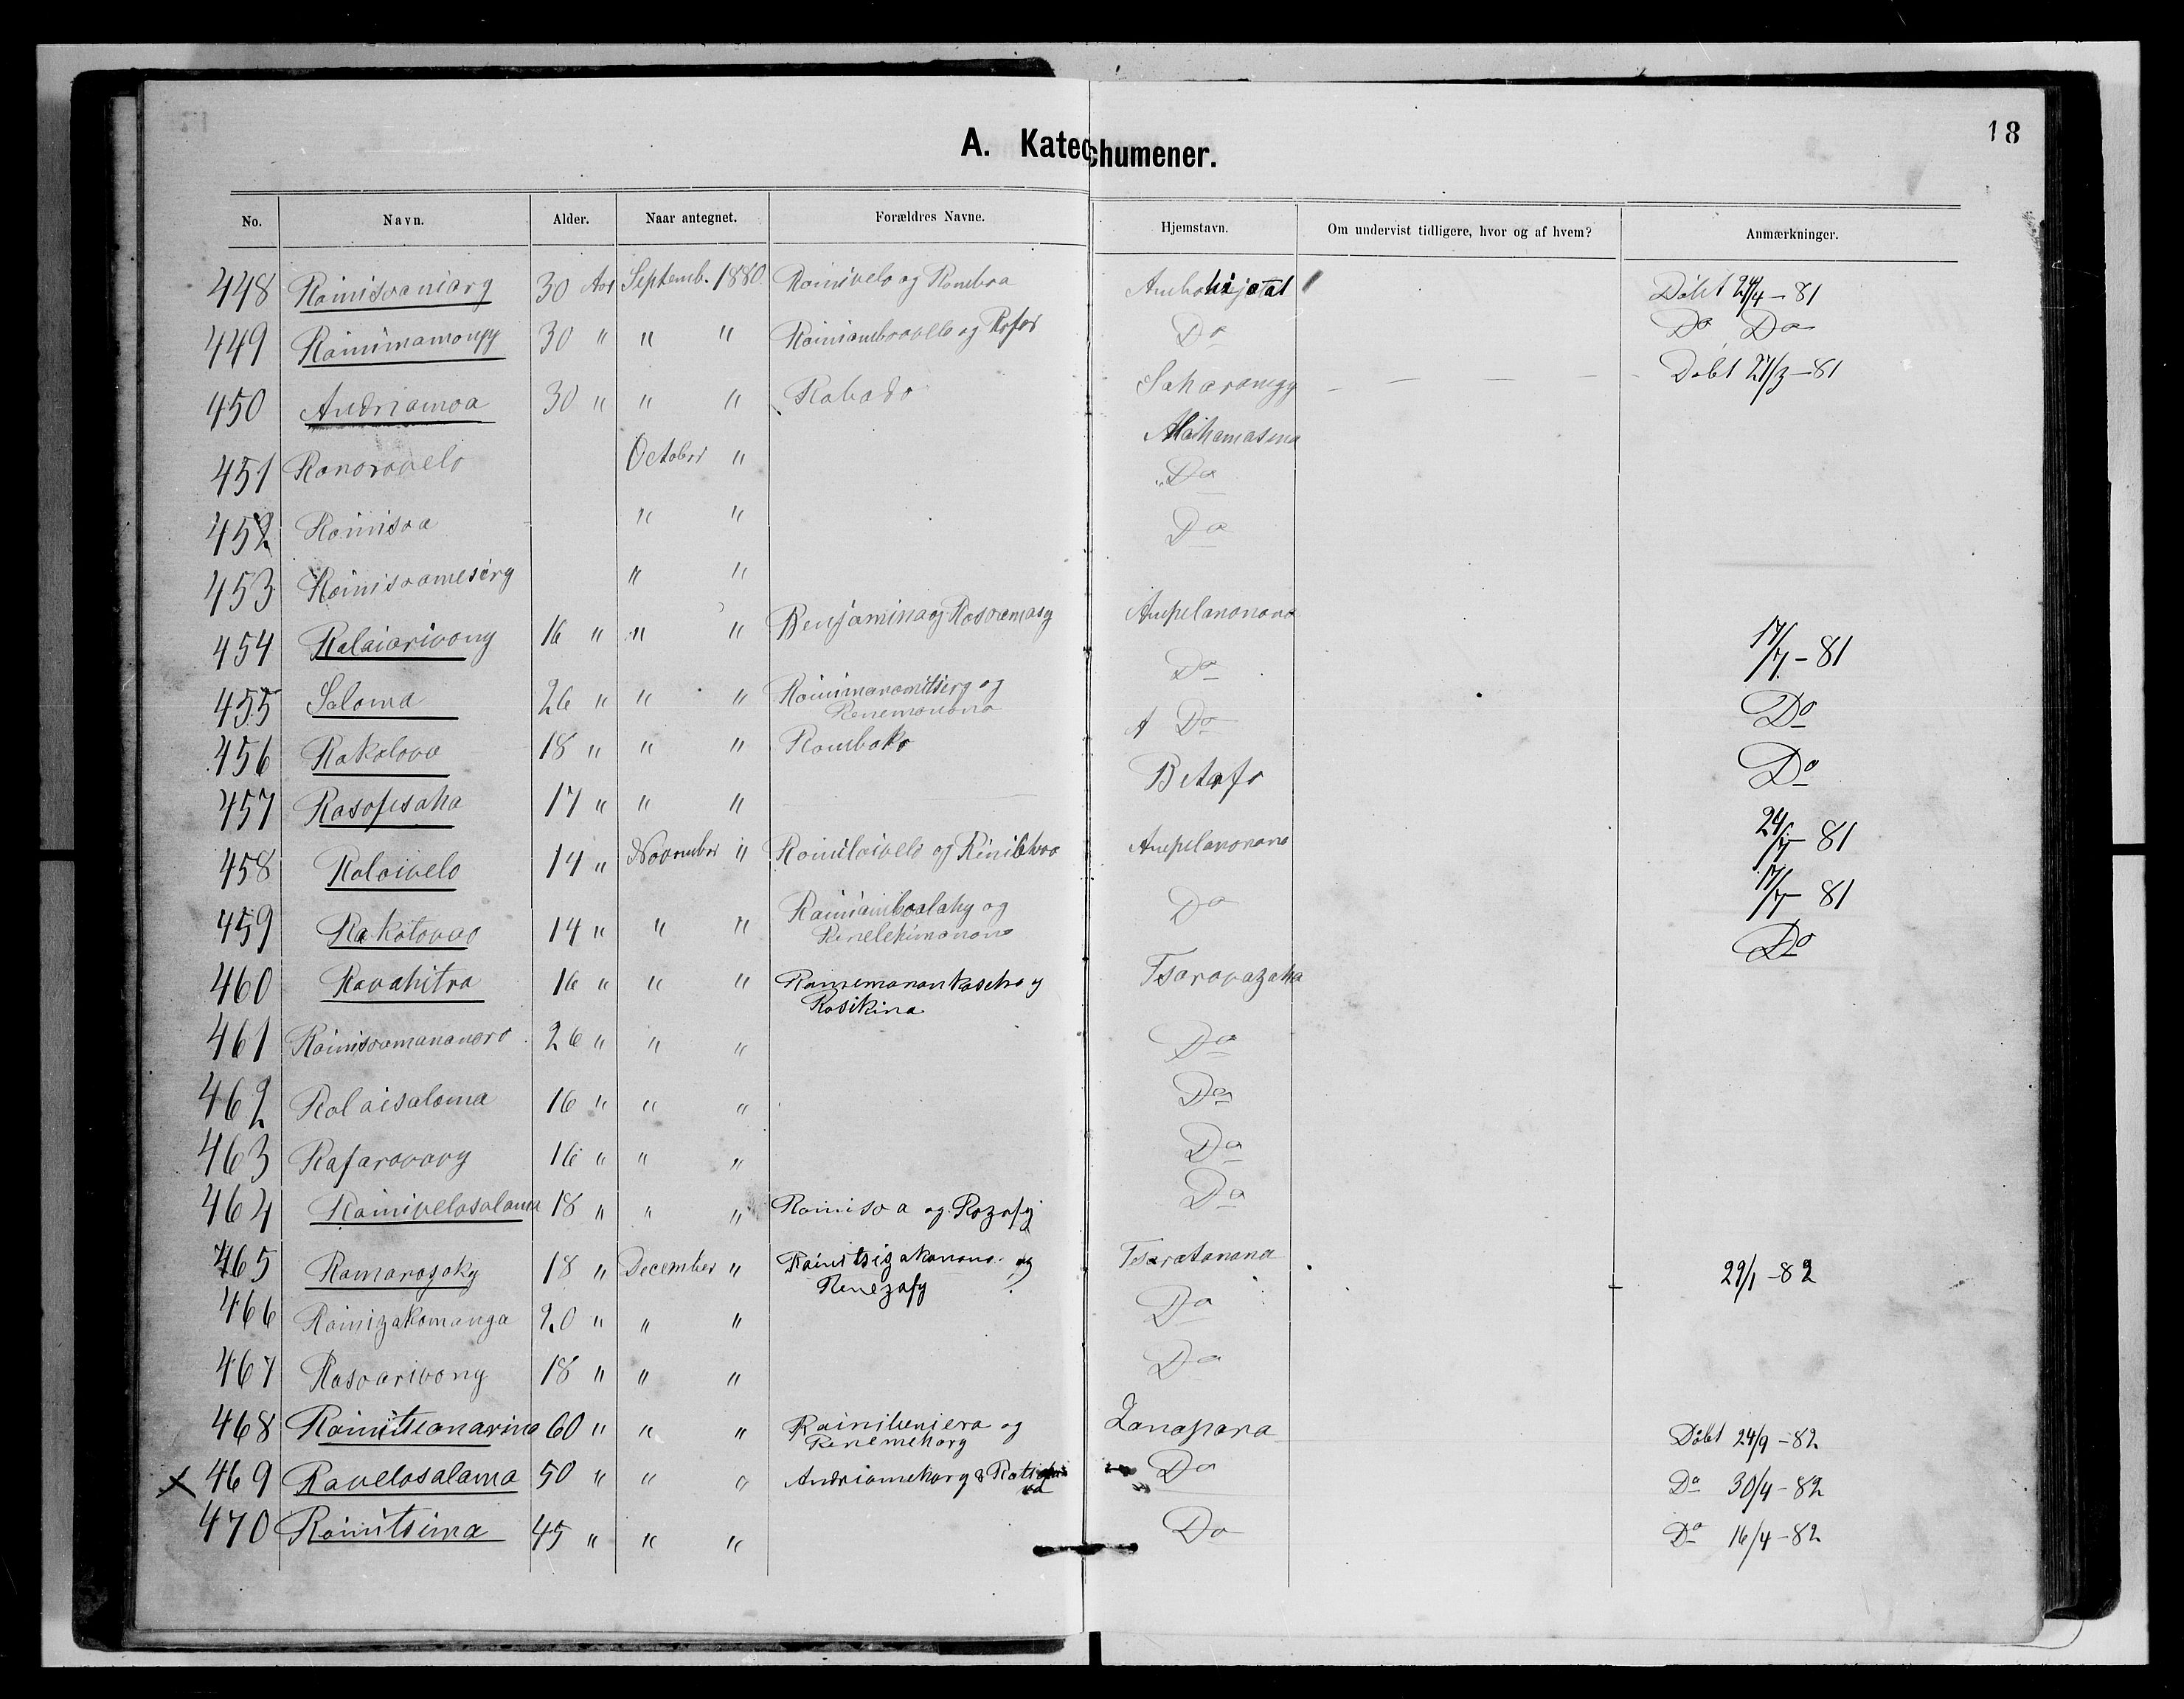 18
A. Katechumener.
No. Navn. Alder. Naar antegnet. Forældres Navne. Hjemstavn. Om undervist tidligere, hvor og af hvem? Anmærkninger.
448 Rainisoaniary 30 Aar Septemb. 1880. Rainivelo og Ramboa Døbt 24/4-81
449 Rainimamongy 30 " " " Rainiamboavelo og Do Do Do
450 Andriamoa 30 " " " Rabado Saharangy - - - - - Døbt 27/3-81
Mahamasina
451 Ranorovelo October " Do
452 Rainisoa " " Do
453 Rainisoamesiry " "
454 Ralaiarivony 16 " " " Benjamina og Rasoamasy Ampelanonana 17/7-81
455 Saloma 26 " " " Rainimanomitsiry og Do Do
Renemanana
456 Rakalova 18 " " " Ramboko Do Do
457 Rasofesaha 17 " " " Betafo 24/7-81
458 Ralaivelo 14 " November " Rainilaivelo og Ampelanonana 17/7-81
459 Rakotovao 14 " " " Rainiamboalahy og Do Do
Renelehimanana
460 Ravahitra 16 " " " Tsaravazaha
Rasikina
461 Rainisoamananoro 26 " " " Do
462 Ralaisaloma 16 " " " Do
463 Rafaravavy 16 " " " Do
464 Rainivelosalama 18 " " " Rainisoa og Razafy Do
465 Ramarozaky 18 " December " Rainitsizakanana og Tsaratanana 29/1-82
Renezafy
466 Rainizakamanga 20 " " " Do
467 Rasoarivony 18 " " " Do
468 Rainitsianarina 60 " " " Rainibeniera og Zanapara Døbt 24/9-82
Renemehary
x 469 Ravelosalama 50 " " " Andriamehary & Do Do 30/4-82
470 Rainitsima 45 " " " Do Do 16/4-82